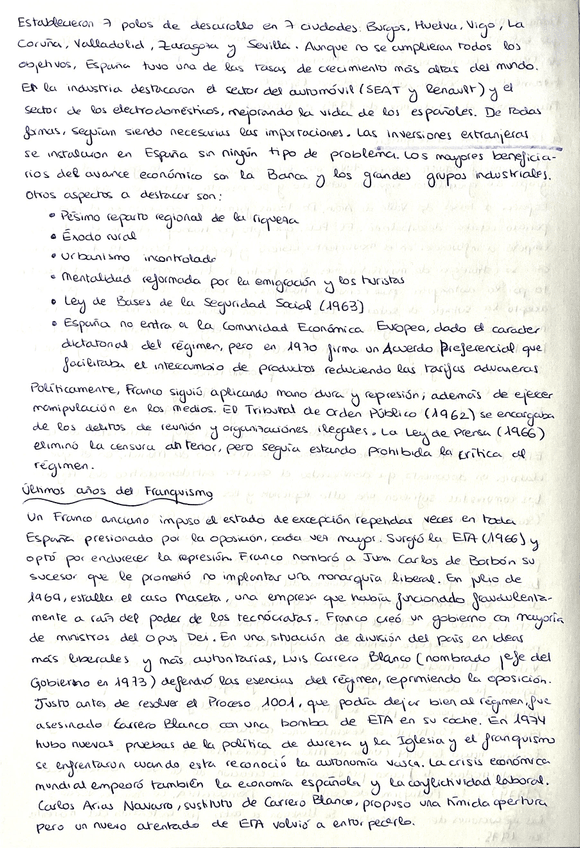 Establecieron 7 polos de desarrollo en 7 ciudades: Burgos, Huelva, Vigo, La
Coruña, Valladolid, Zaragoza y Sevilla. Aunque no se cumplieran todos los
objetivos, España tuvo una de las tasas de crecimiento más altas del mundo.
En la industria destacaron el sector del automóvil (SEAT y Renault) y el
sector de los electrodomésticos, mejorando la vida de los españoles. De todas
formas, seguían siendo necesarias las importaciones. Las inversiones extranjeras
se instalaron en España sin ningún tipo de problema. Los mayores beneficia-
rios del avance económico son la Banca y los grandes grupos industriales.
Otros aspectos a destacar son:
• Pésimo reparto regional de la riqueza
• Éxodo rural
• Urbanismo incontrolado
• Mentalidad reformada por la emigración y los turistas
• Ley de Bases de la Seguridad Social (1963)
• España no entra a la Comunidad Económica Europea, dado el caracter
dictatorial del régimen, pero en 1970 firma un Acuerdo Preferencial que
facilitaba el intercambio de productos reduciendo las tarifas aduaneras
Políticamente, Franco siguió aplicando mano dura y represión; además de ejercer
manipulación en los medios. El Tribunal de Orden Público (1962) se encargaba
de los delitos de reunión y organizaciones ilegales. La Ley de Prensa (1966)
eliminó la censura anterior, pero seguía estando prohibida la crítica al
régimen.
Últimos años del Franquismo
Un Franco anciano impuso el estado de excepción repetidas veces en toda
España presionado por la oposición, cada vez mayor. Surgió la ETA (1966) y
optó por endurecer la represión. Franco nombró a Juan Carlos de Borbón su
sucesor que le prometió no implantar una monarquía liberal. En julio de
1969, estalla el caso Maseta, una empresa que había funcionado fraudulenta-
mente a raíz del poder de los tecnócratas. Franco creó un gobierno con mayoría
de ministros del Opus Dei. En una situación de división del país en ideas
más liberales y más autoritarias, Luis Carrero Blanco (nombrado jefe del
Gobierno en 1973) defendió las esencias del régimen, reprimiendo la oposición.
Justo antes de resolver el Proceso 1001, que podía dejar bien al régimen, fue
asesinado Carrero Blanco con una bomba de ETA en su coche. En 1974
hubo nuevas pruebas de la política de dureza y la Iglesia y el franquismo
se enfrentaron cuando esta reconoció la autonomía vasca. La crisis económica
mundial empeoró también la economía española y la conflictividad laboral.
Carlos Arias Navarro, sustituto de Carrero Blanco, propuso una tímida apertura
pero un nuevo atentado de ETA volvió a entorpecerlo.